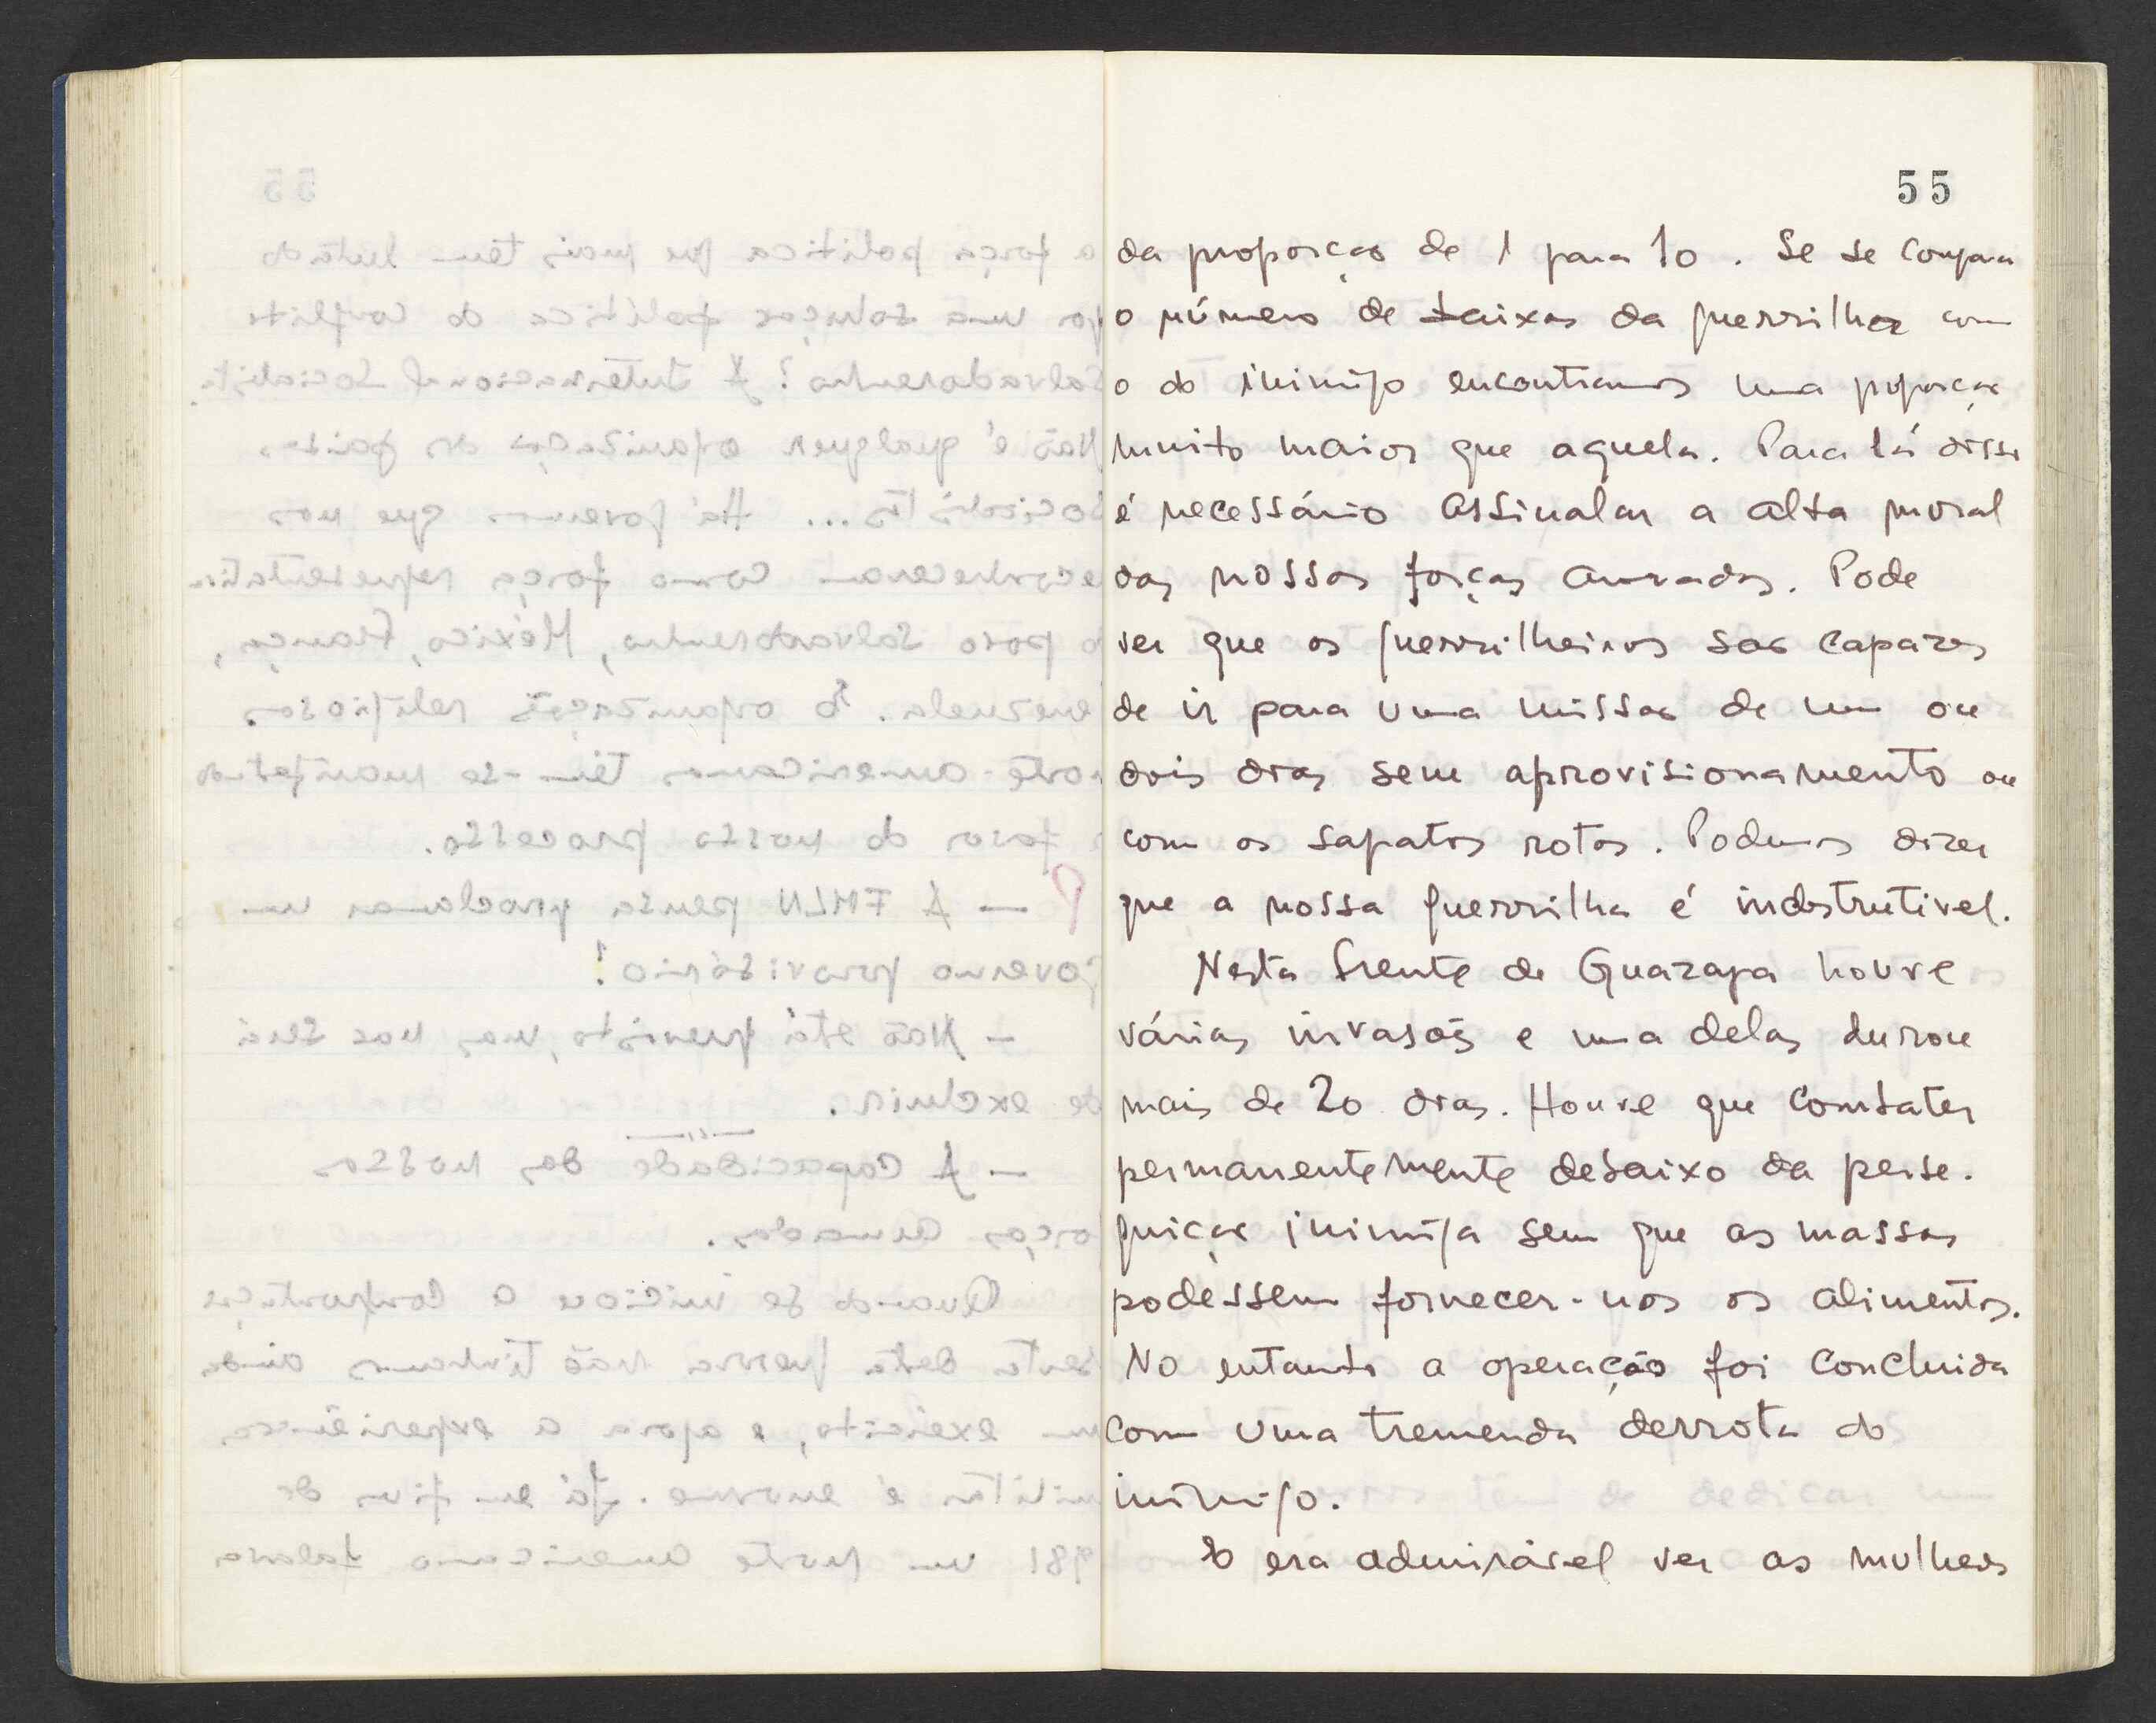 55
da proporção de 1 para 10. Se se compara
o número de baixas da guerrilha com
o do inimigo encontramos uma proporção
muito maior que aquela. Para lá disso
é necessário assinalar a alta moral
das nossas forças armadas. Pode
ver que os guerrilheiros são capazes
de ir para uma missão de um ou
dois dias sem aprovisionamento ou
com os sapatos rotos. Podemos dizer
que a nossa guerrilha é indestrutivel.
Nesta frente de Guazapa houve
várias invasões e uma delas durou
mais de 20 dias. Houve que combater
permanentemente debaixo da perse-
guição inimiga sem que as massas
podessem fornecer-nos os alimentos.
No entanto a operação foi concluida
com uma tremenda derrota do
inimigo.
E era admirável ver as mulheres